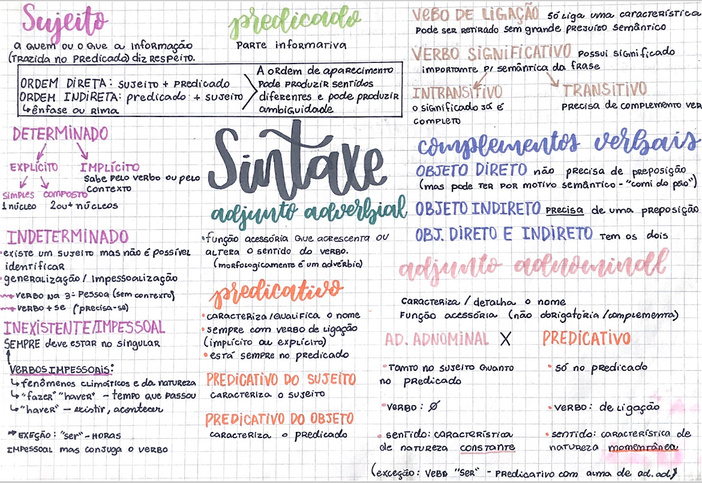 Sujeito
a quem ou o que a informação
(trazida no predicado) diz respeito.
predicado
Parte informativa
ORDEM DIRETA: sujeito + predicado
ORDEM INDIRETA: predicado + sujeito
↳ ênfase ou rima
A ordem de aparecimento
pode produzir sentidos
diferentes e pode produzir
ambiguidade
DETERMINADO
EXPLÍCITO
IMPLÍCITO
Sabe pelo verbo ou pelo
contexto
SIMPLES
1 núcleo
COMPOSTO
2 ou + núcleos
INDETERMINADO
existe um sujeito mas não é possível
identificar
generalização / Impessoalização
→ verbo na 3ª Pessoa (sem contexto)
→ verbo + se ("precisa-se)
INEXISTENTE/IMPESSOAL
SEMPRE deve estar no singular
VERBOS IMPESSOAIS:
↳ fenômenos climáticos e da natureza
↳ "fazer" "haver" - tempo que passou
↳ "haver" - existir, acontecer
→ exeção: "ser" - HORAS
IMPESSOAL mas conjuga o verbo
Sintaxe
adjunto adverbial
• função acessória que acrescenta ou
altera o sentido do verbo.
(morfologicamente é um advérbio)
predicativo
• caracteriza/qualifica o nome
• sempre com verbo de ligação
(implícito ou explícito)
• está sempre no predicado
PREDICATIVO DO SUJEITO
caracteriza o sujeito
PREDICATIVO DO OBJETO
caracteriza o predicado
VEBO DE LIGAÇÃO só liga uma característica
Pode ser retirado sem grande prejuízo semântico
VERBO SIGNIFICATIVO possui significado
importante p/ semântica da frase
INTRANSITIVO
o significado já é
completo
TRANSITIVO
precisa de complemento ver
complementos verbais
OBJETO DIRETO não precisa de preposição
(mas pode ter por motivo semântico - "comi do pão")
OBJETO INDIRETO precisa de uma preposição
OBJ. DIRETO E INDIRETO tem os dois
adjunto adnominall
Caracteriza / detalha o nome
Função acessória (não obrigatória/complementa)
AD. ADNOMINAL X PREDICATIVO
• Tanto no sujeito quanto
no predicado
• só no predicado
• VERBO: Ø
• VERBO: de ligação
• sentido: característica
de natureza constante
• sentido: característica de
natureza momentânea
(exceção: VEBO "SER" - Predicativo com alma de ad.ad)